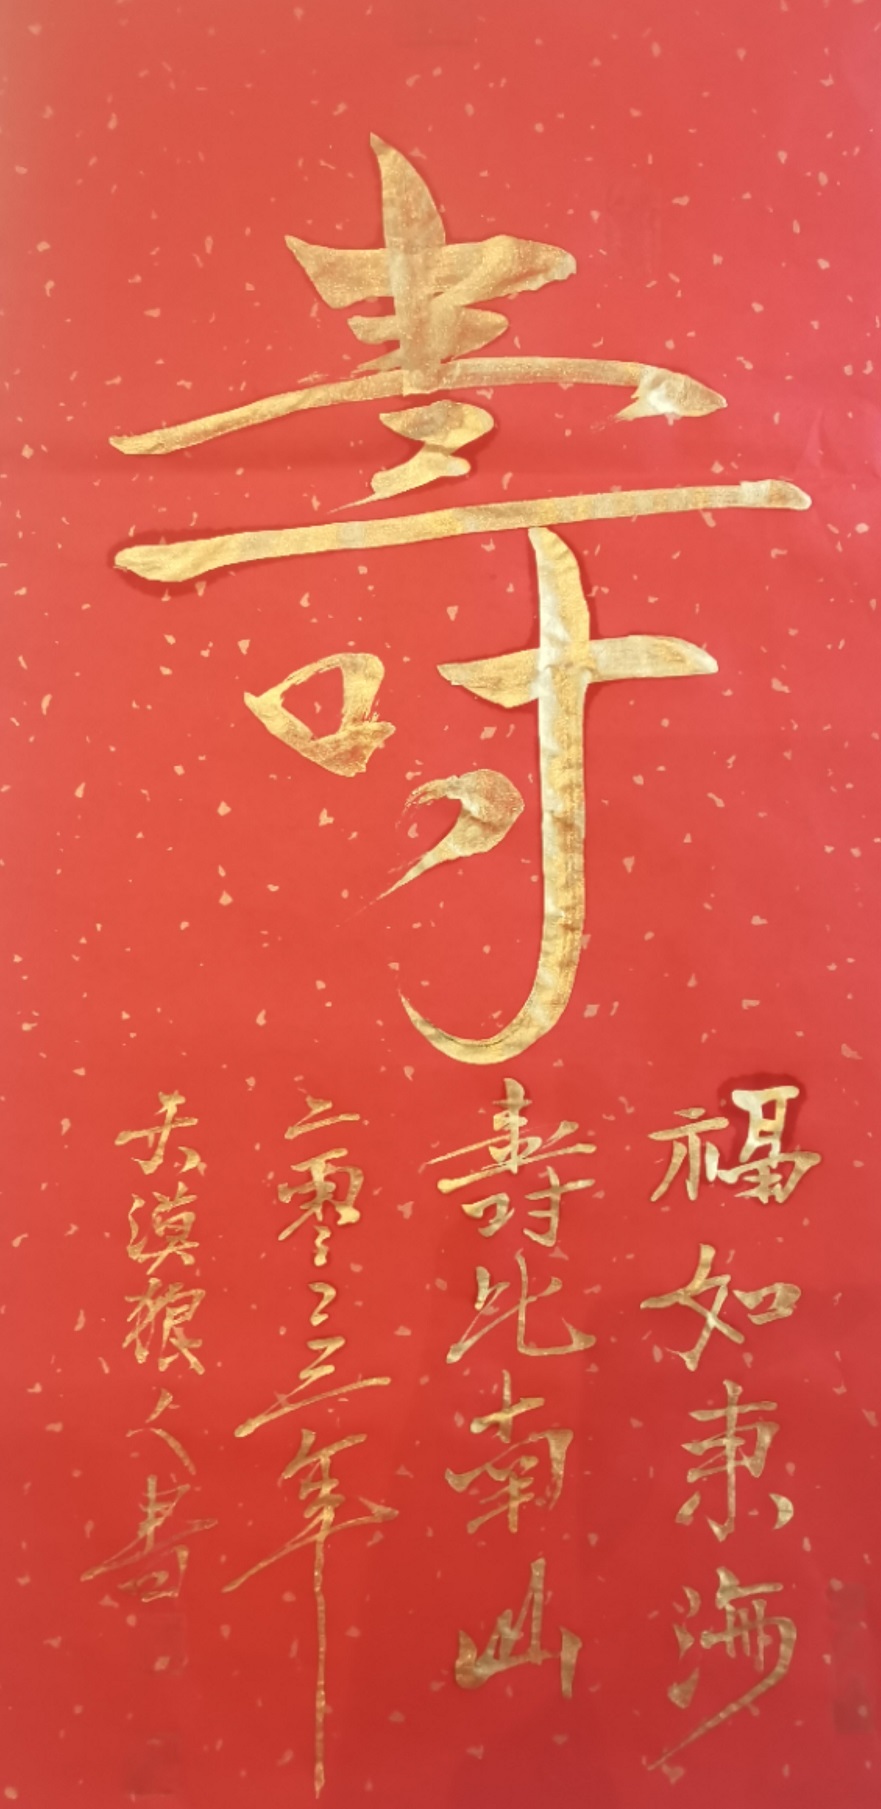 壽
福如東海
壽比南山
二零二三年
大漠狼人書